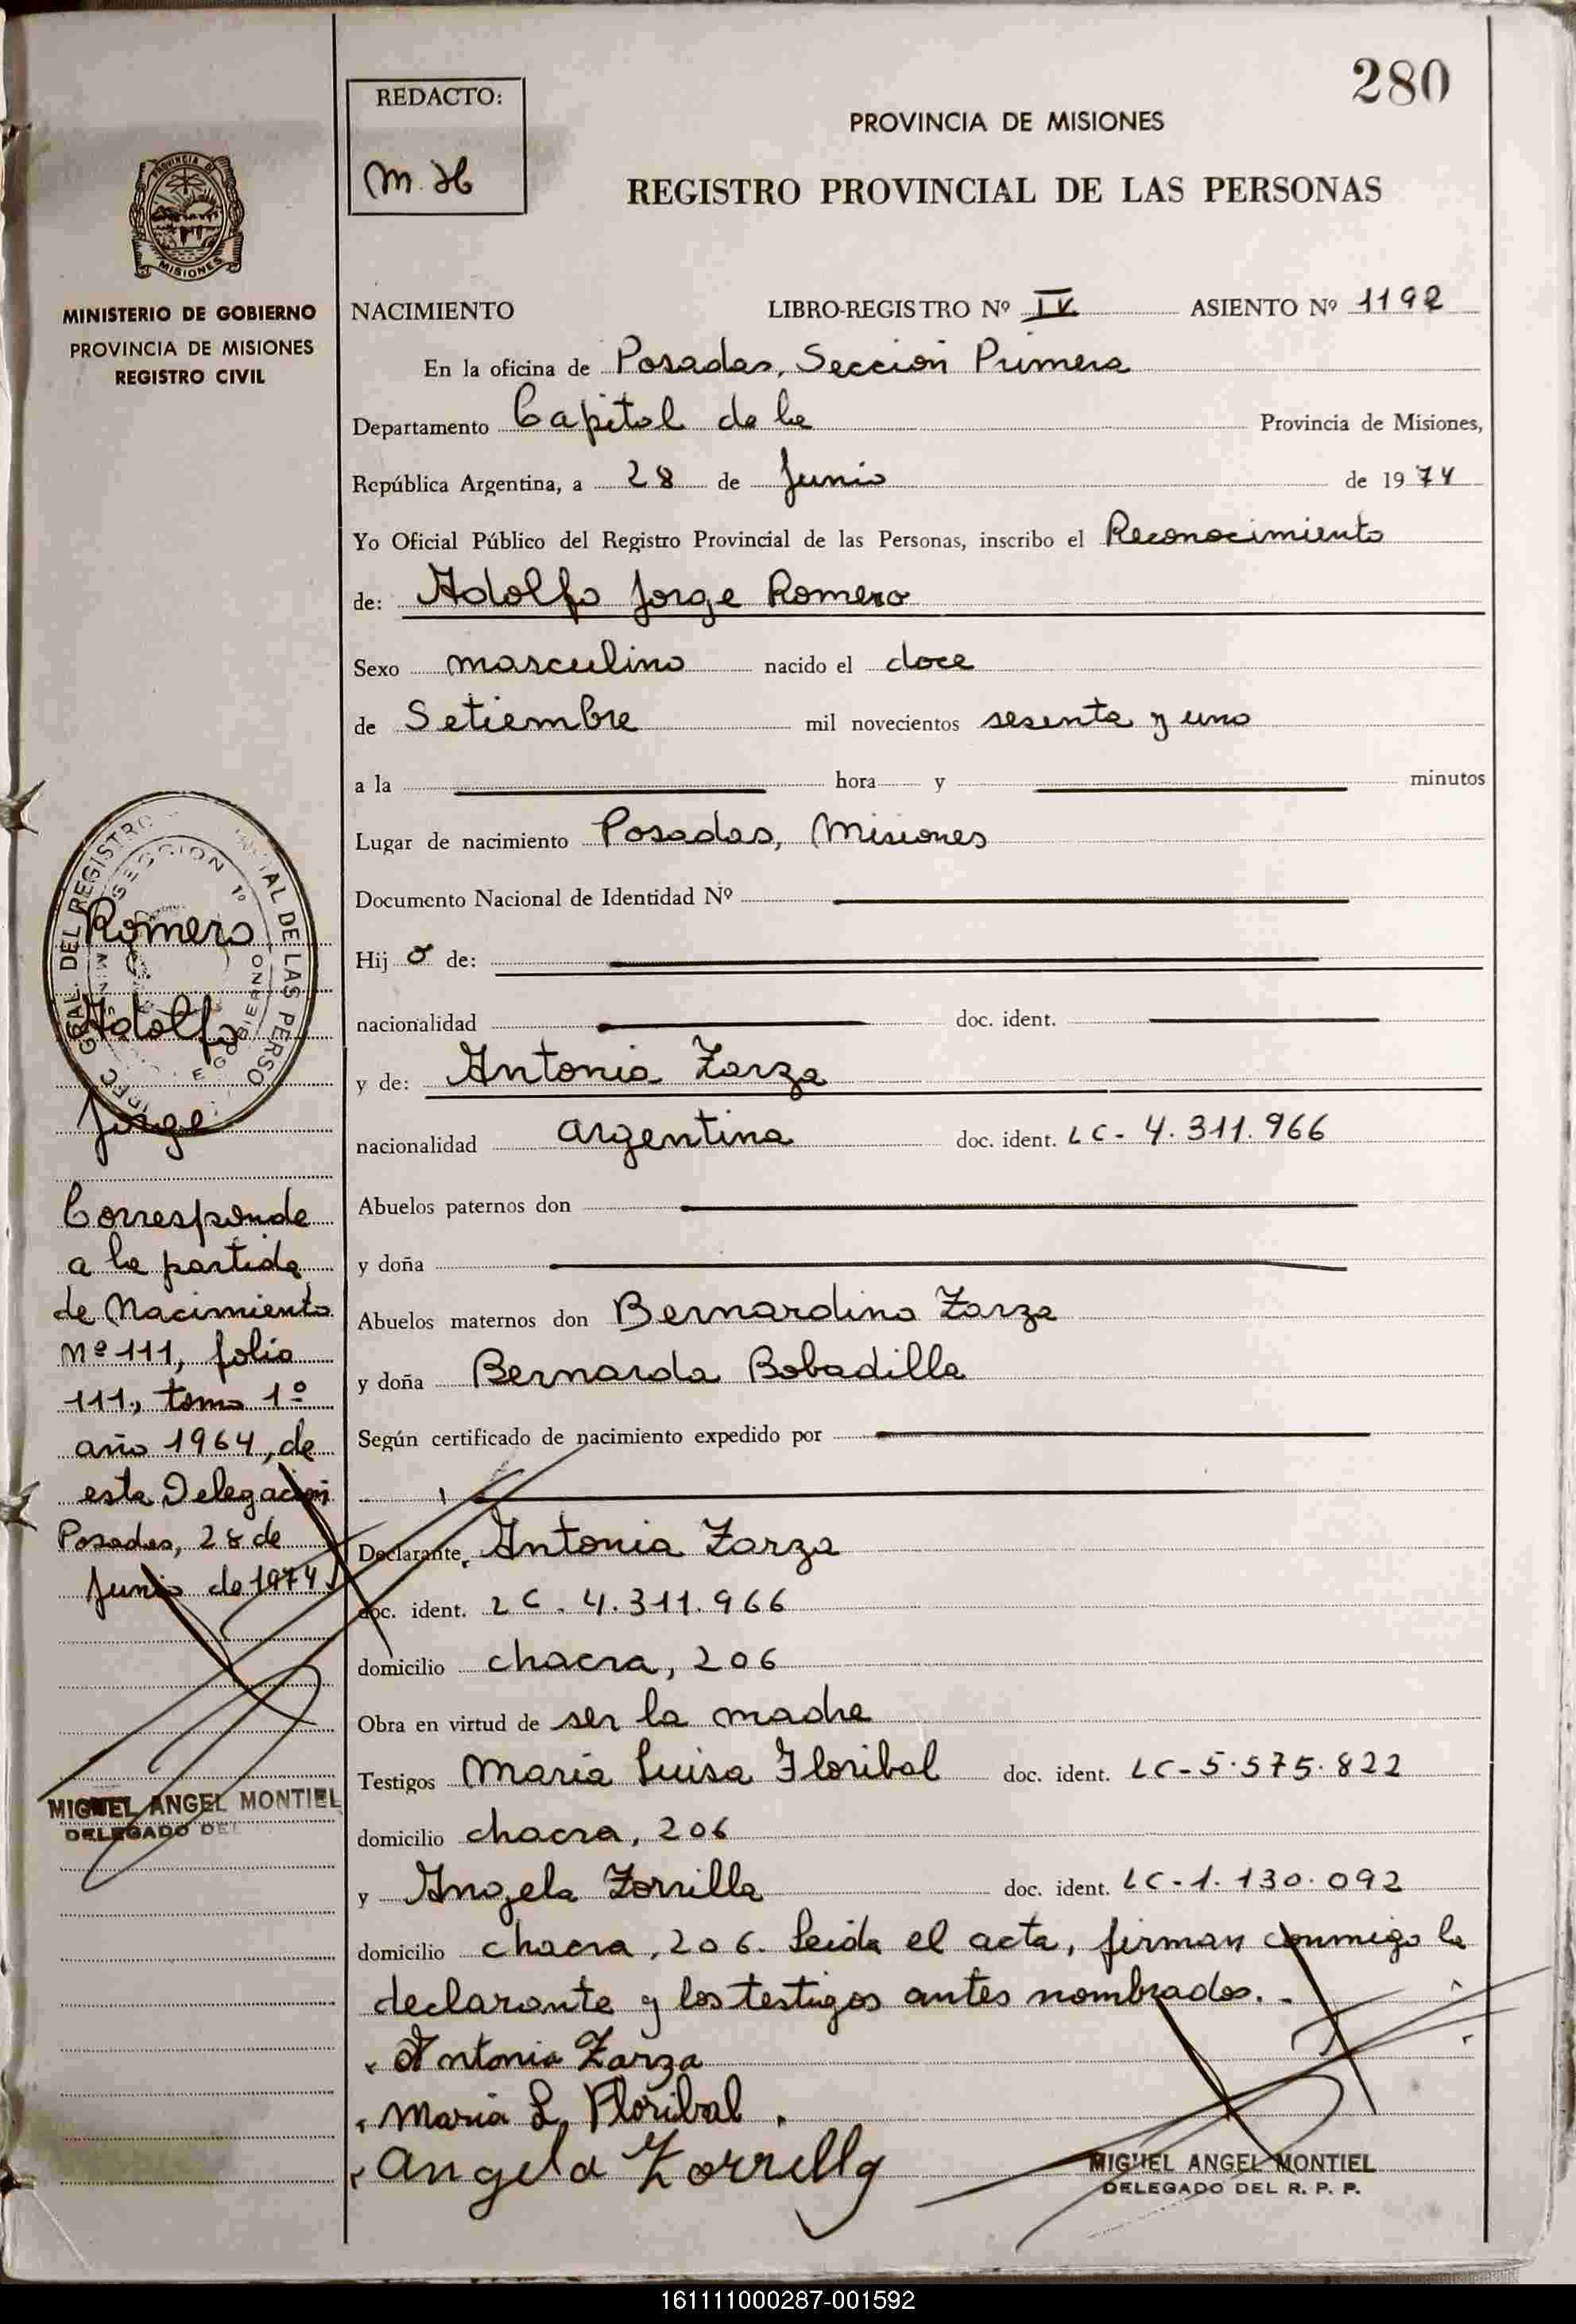 280
REDACTO:
M. H
PROVINCIA DE MISIONES
REGISTRO PROVINCIAL DE LAS PERSONAS
PROVINCIA DE
MISIONES
MINISTERIO DE GOBIERNO
PROVINCIA DE MISIONES
REGISTRO CIVIL
NACIMIENTO LIBRO-REGISTRO Nº IV ASIENTO Nº 1192
En la oficina de Posadas, Sección Primera
Departamento Capital de la Provincia de Misiones,
República Argentina, a 28 de Junio de 1974
Yo Oficial Público del Registro Provincial de las Personas, inscribo el Reconocimiento
de: Adolfo Jorge Romero
Sexo masculino nacido el doce
de Setiembre mil novecientos sesenta y uno
a la hora y minutos
Lugar de nacimiento Posadas, Misiones
Documento Nacional de Identidad Nº
Hij o de:
nacionalidad doc. ident.
y de: Antonia Zarza
nacionalidad argentina doc. ident. LC- 4.311.966
Abuelos paternos don
y doña
Abuelos maternos don Bernardino Zarza
y doña Bernarda Bobadilla
Según certificado de nacimiento expedido por
Declarante, Antonia Zarza
doc. ident. LC. 4.311.966
domicilio chacra, 206
Obra en virtud de ser la madre
Testigos Maria Luisa Floribal doc. ident. LC-5.575.822
domicilio chacra, 206
y Angela Zorrilla doc. ident. LC-1.130.092
domicilio chacra, 206. Leida el acta, firman conmigo la
declarante y los testigos antes nombrados.-
Antonia Zarza
Maria L. Floribal.
Angela Zorrilla
MIGUEL ANGEL MONTIEL
DELEGADO DEL R. P. P.
GRAL. DEL REGISTRO DE LAS PERSO
SECCION 1º
Romero
Adolfo
Jorge
Corresponde
a la partida
de Nacimiento
Nº 111, folio
111, tomo 1º
año 1964, de
esta Delegación
Posadas, 28 de
Junio de 1974
MIGUEL ANGEL MONTIEL
DELEGADO DEL
161111000287-001592